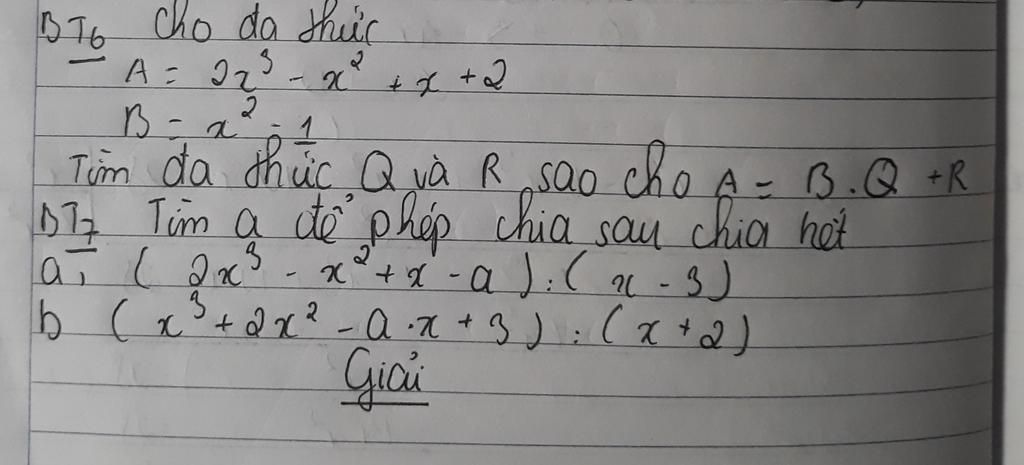 BT6 Cho đa thức
A = 2x³ - x² + x + 2
B = x² - 1
Tìm đa thức Q và R sao cho A = B.Q + R
BT7 Tìm a để phép chia sau chia hết
a, (2x³ - x² + x - a) : (x - 3)
b (x³ + 2x² - a.x + 3) : (x + 2)
Giải